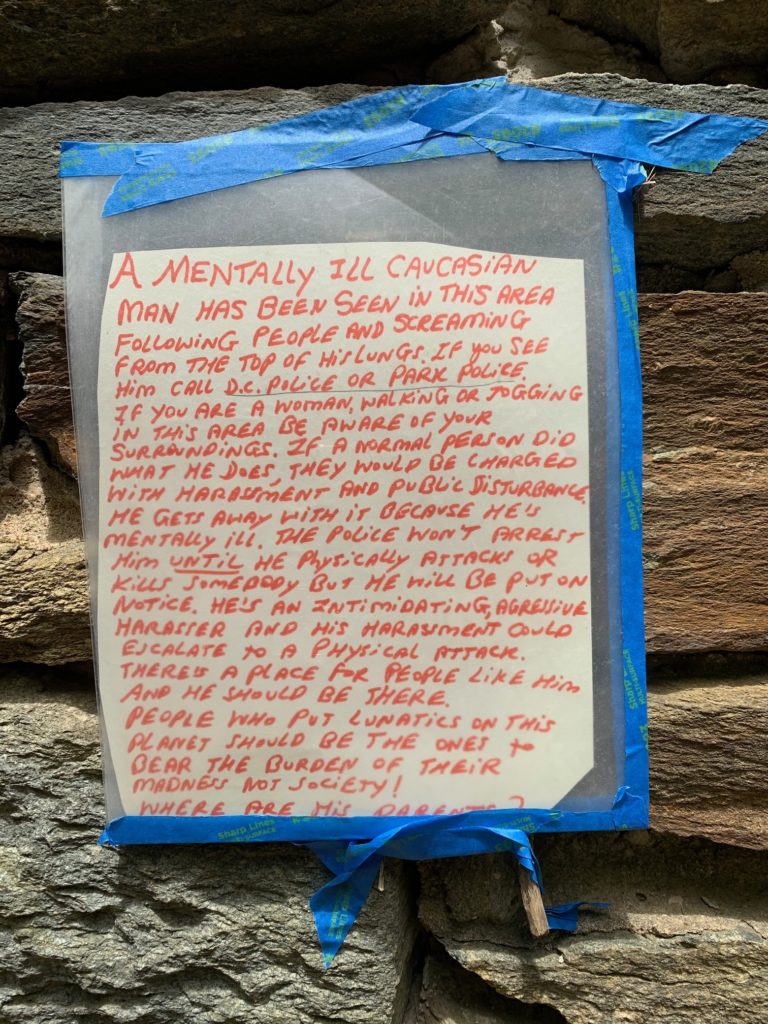 A MENTALLY ILL CAUCASIAN
MAN HAS BEEN SEEN IN THIS AREA
FOLLOWING PEOPLE AND SCREAMING
FROM THE TOP OF HIS LUNGS. IF YOU SEE
HIM CALL D.C. POLICE OR PARK POLICE.
IF YOU ARE A WOMAN, WALKING OR JOGGING
IN THIS AREA BE AWARE OF YOUR
SURROUNDINGS. IF A NORMAL PERSON DID
WHAT HE DOES, THEY WOULD BE CHARGED
WITH HARASSMENT AND PUBLIC DISTURBANCE.
HE GETS AWAY WITH IT BECAUSE HE'S
MENTALLY ILL. THE POLICE WON'T ARREST
HIM UNTIL HE PHYSICALLY ATTACKS OR
KILLS SOMEBODY BUT HE WILL BE PUT ON
NOTICE. HE'S AN INTIMIDATING, AGRESSIVE
HARASSER AND HIS HARASSMENT COULD
ESCALATE TO A PHYSICAL ATTACK.
THERE'S A PLACE FOR PEOPLE LIKE HIM
AND HE SHOULD BE THERE.
PEOPLE WHO PUT LUNATICS ON THIS
PLANET SHOULD BE THE ONES TO
BEAR THE BURDEN OF THEIR
MADNESS NOT SOCIETY!
WHERE ARE HIS PARENTS?
Sharp Lines
MULTI-SURFACE
#2093